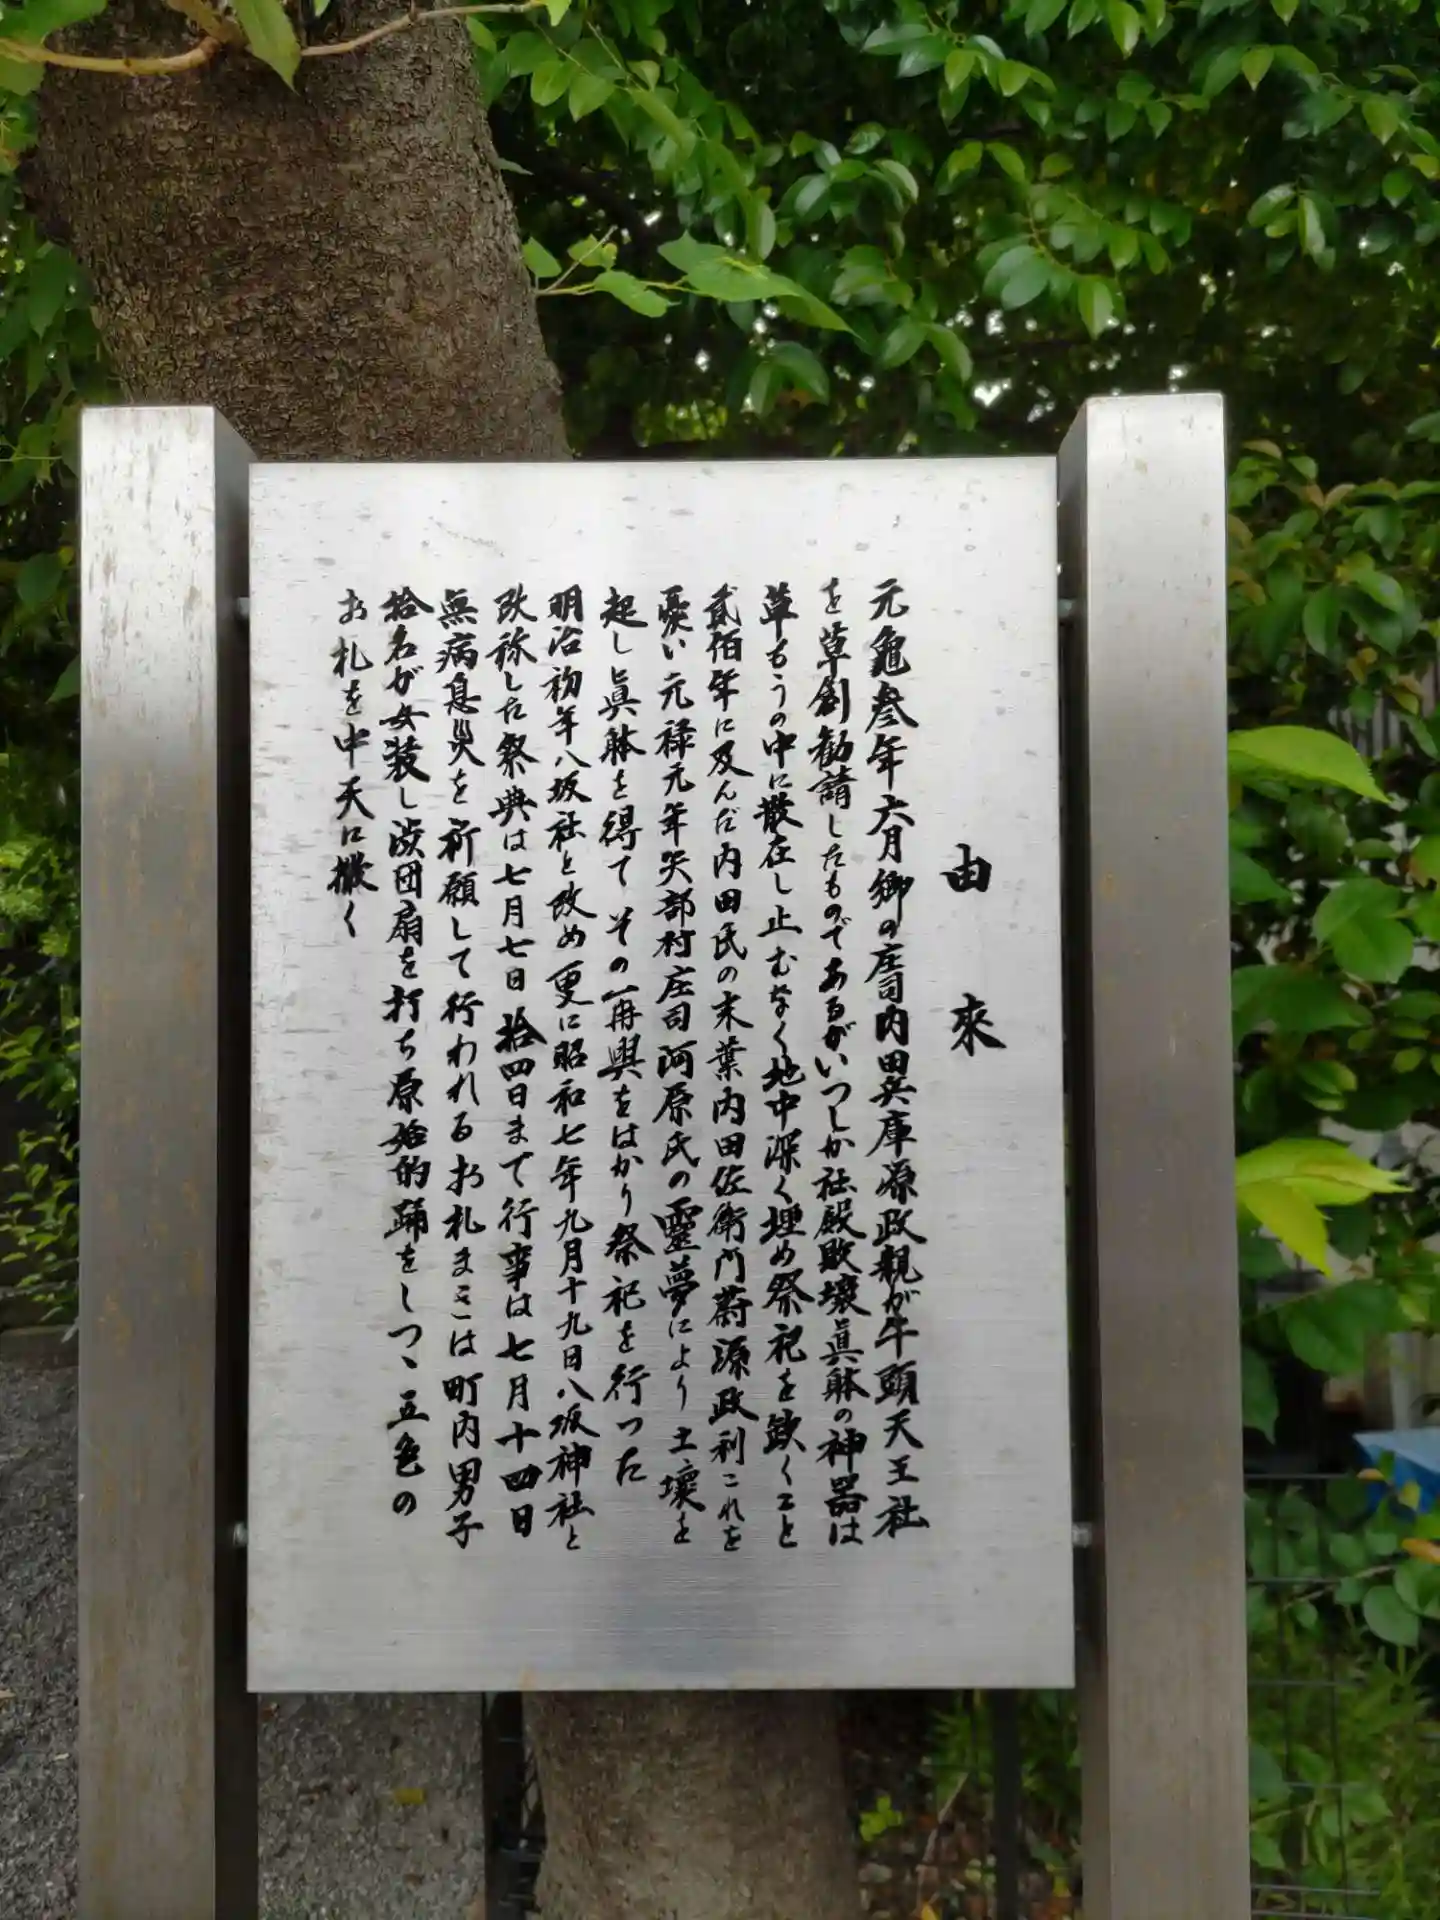 由来
元龜叁年六月郷の庄司内田兵庫源政親が牛頭天王社
を草創勧請したものであるがいつしか社殿敗壊眞躰の神器は
草もうの中に散在し止むなく地中深く埋め祭祀を欽くこと
貳佰年に及んだ内田氏の末葉内田佐衛門蔚源政利これを
憂い元禄元年矢部村庄司阿原氏の靈夢により土壌を
起し眞躰を得てその再興をはかり祭祀を行った
明治初年八坂社と改め更に昭和七年九月十九日八坂神社と
改称した祭典は七月七日拾四日まで行事は七月十四日
無病息災を祈願して行われるお札まきは町内男子
拾名が女装し渋団扇を打ち原始的踊をしつゝ五色の
お札を中天に撒く